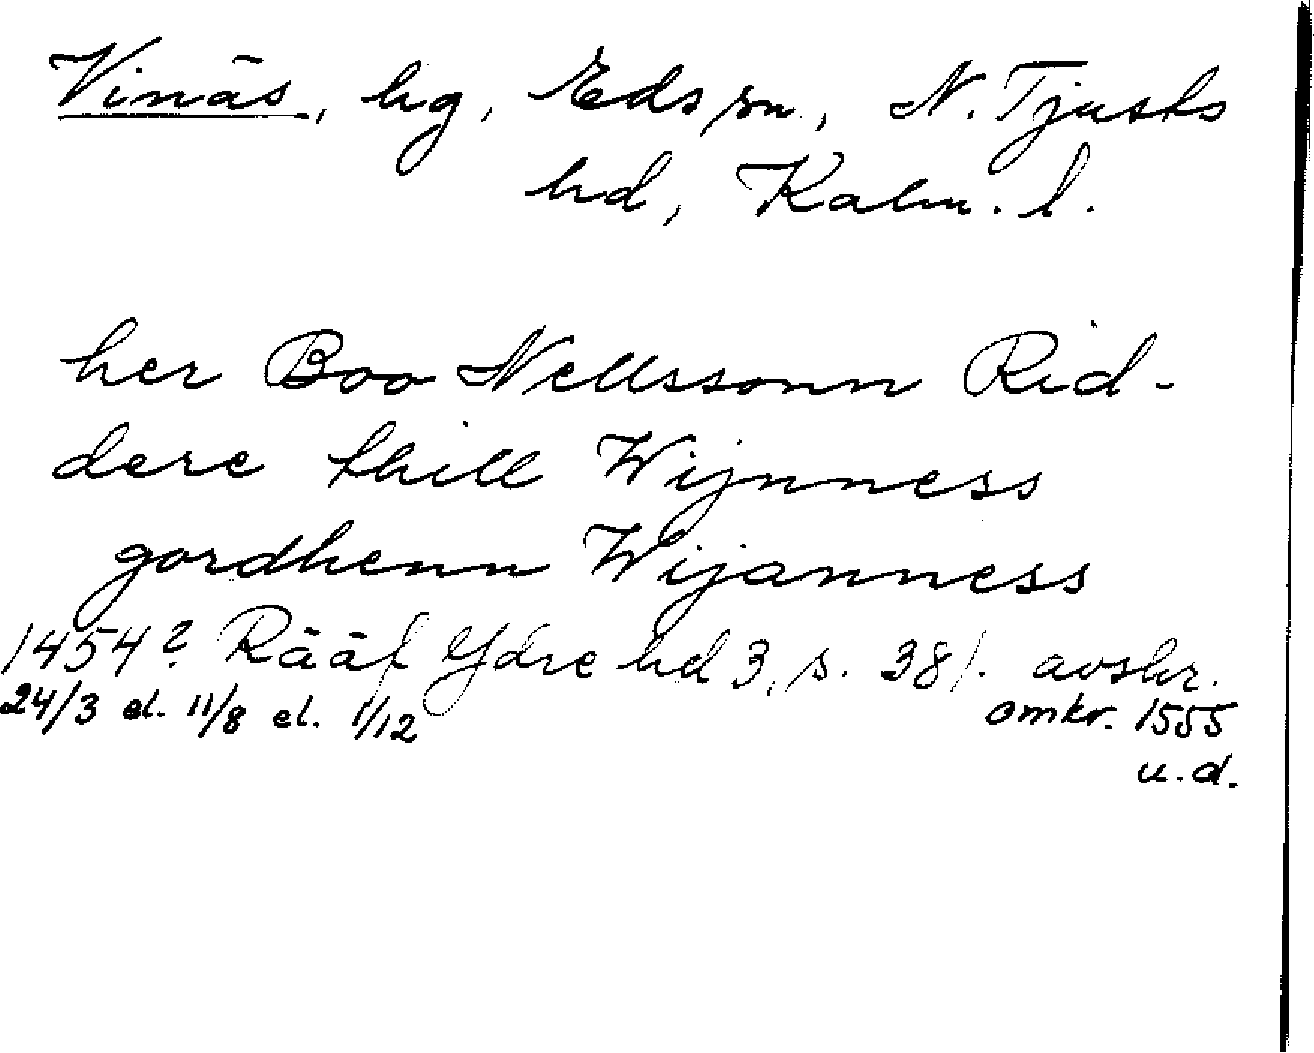 Vinäs, hg, Eds sn., N. Tjusts
hd, Kalm. l.
her Boo Nellssonn Rid-
dere thill Wijnness
gordhenn Wijanness
1454? Rääf Ydre hd 3, s. 38f. avskr.
24/3 el. 11/8 el. 1/12 omkr. 1555
u.d.